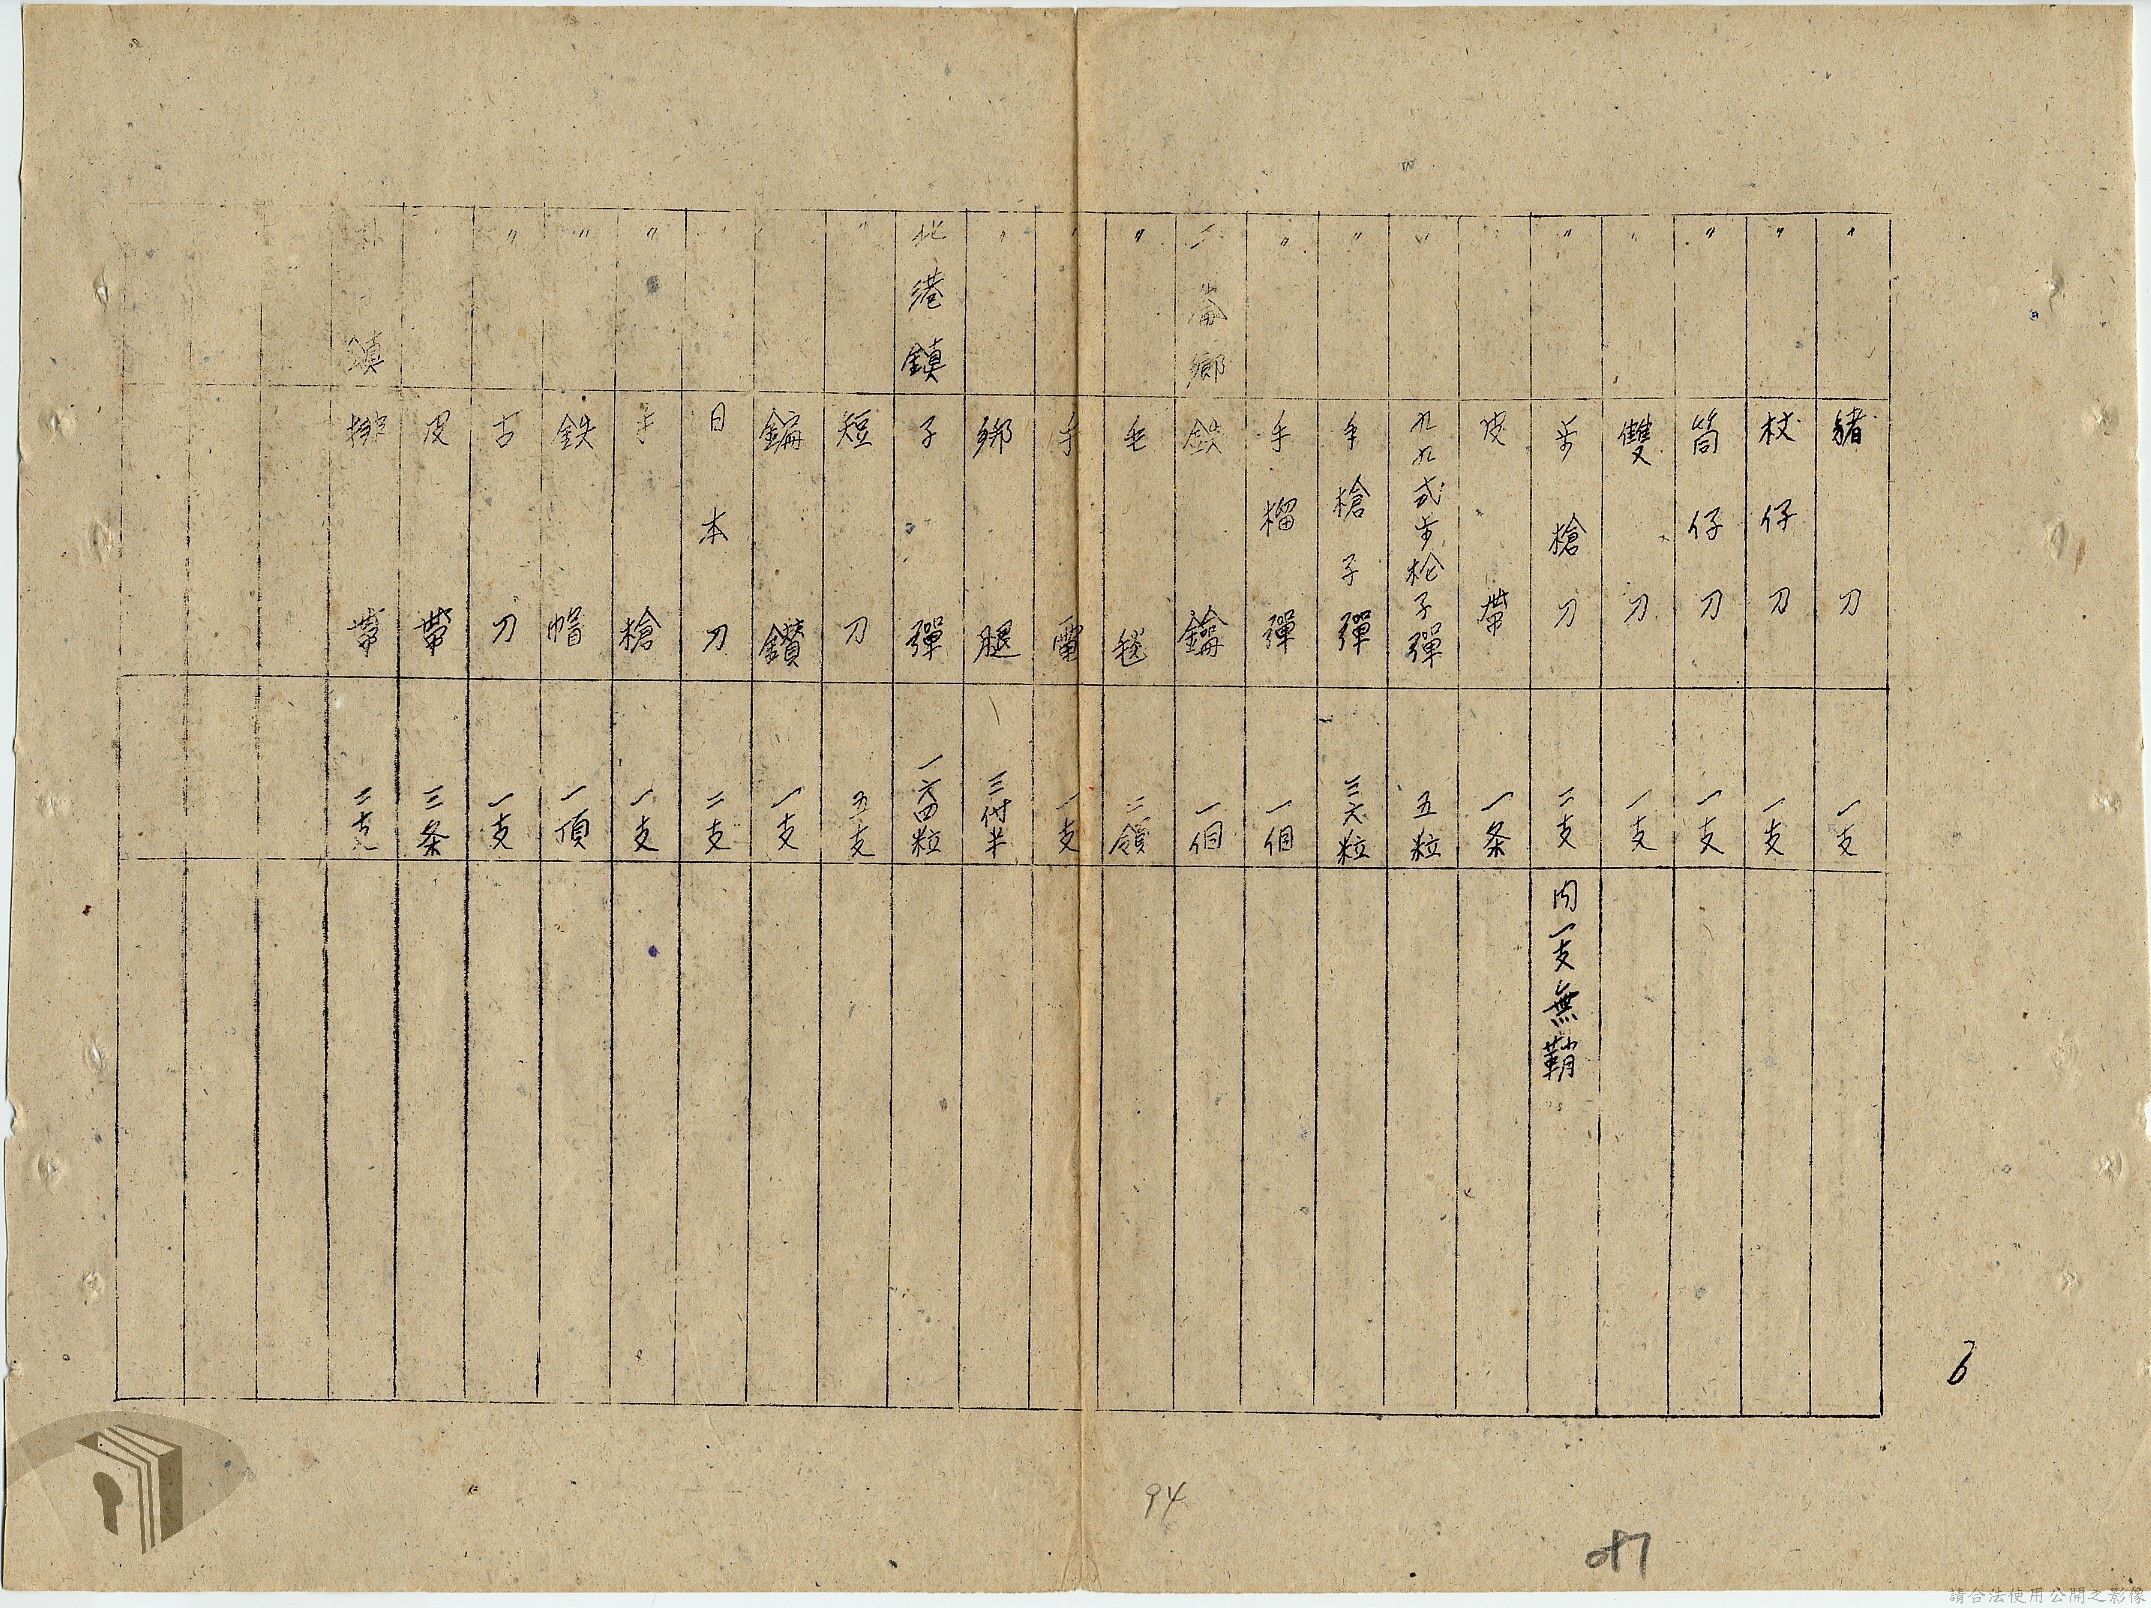 〃 豬刀 一支
〃 杖仔刀 一支
〃 筒仔刀 一支
〃 雙刀 一支
〃 步槍刀 二支 内一支無鞘
〃 皮帶 一条
〃 九九式步枪子彈 五粒
〃 手槍子彈 三六粒
〃 手榴彈 一個
二崙鄉 鉄鑰 一個
〃 毛毯 二領
〃 手電 一支
〃 綁腿 三付半
北港鎮 子彈 一六四粒
〃 短刀 五支
〃 鑽 一支
〃 日本刀 二支
〃 手槍 一支
〃 鉄帽 一頂
〃 古刀 一支
〃 皮帶 三条
鎮 帶 二支
6
94
087
請合法使用公開之影像